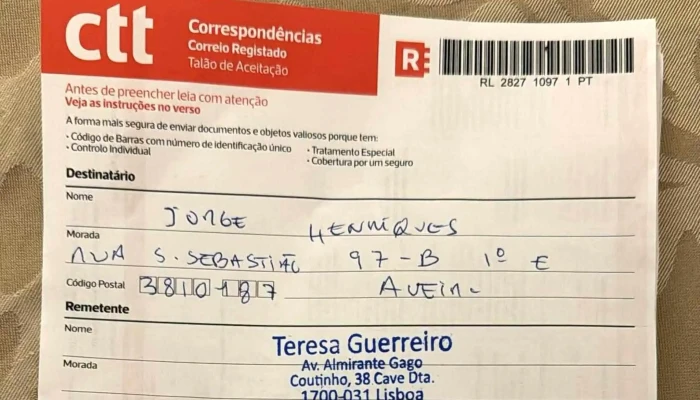 ctt
Correspondências
Correio Registado
Talão de Aceitação
R
RL 2827 1097 1 PT
Antes de preencher leia com atenção
Veja as instruções no verso
A forma mais segura de enviar documentos e objetos valiosos porque tem:
• Código de Barras com número de identificação único
• Tratamento Especial
• Controlo Individual
• Cobertura por um seguro
Destinatário
Nome JORGE HENRIQUES
Morada RUA S. SEBASTIÃO 97-B 1º E
Código Postal 3810187 AVEIRO
Remetente
Nome Teresa Guerreiro
Morada Av. Almirante Gago
Coutinho, 38 Cave Dta.
1700-031 Lisboa